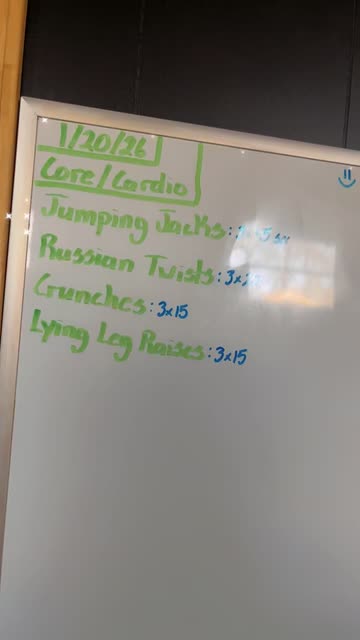 1/20/26
Core/Cardio
Jumping Jacks:
Russian Twists: 3x
Crunches: 3x15
Lying Leg Raises: 3x15